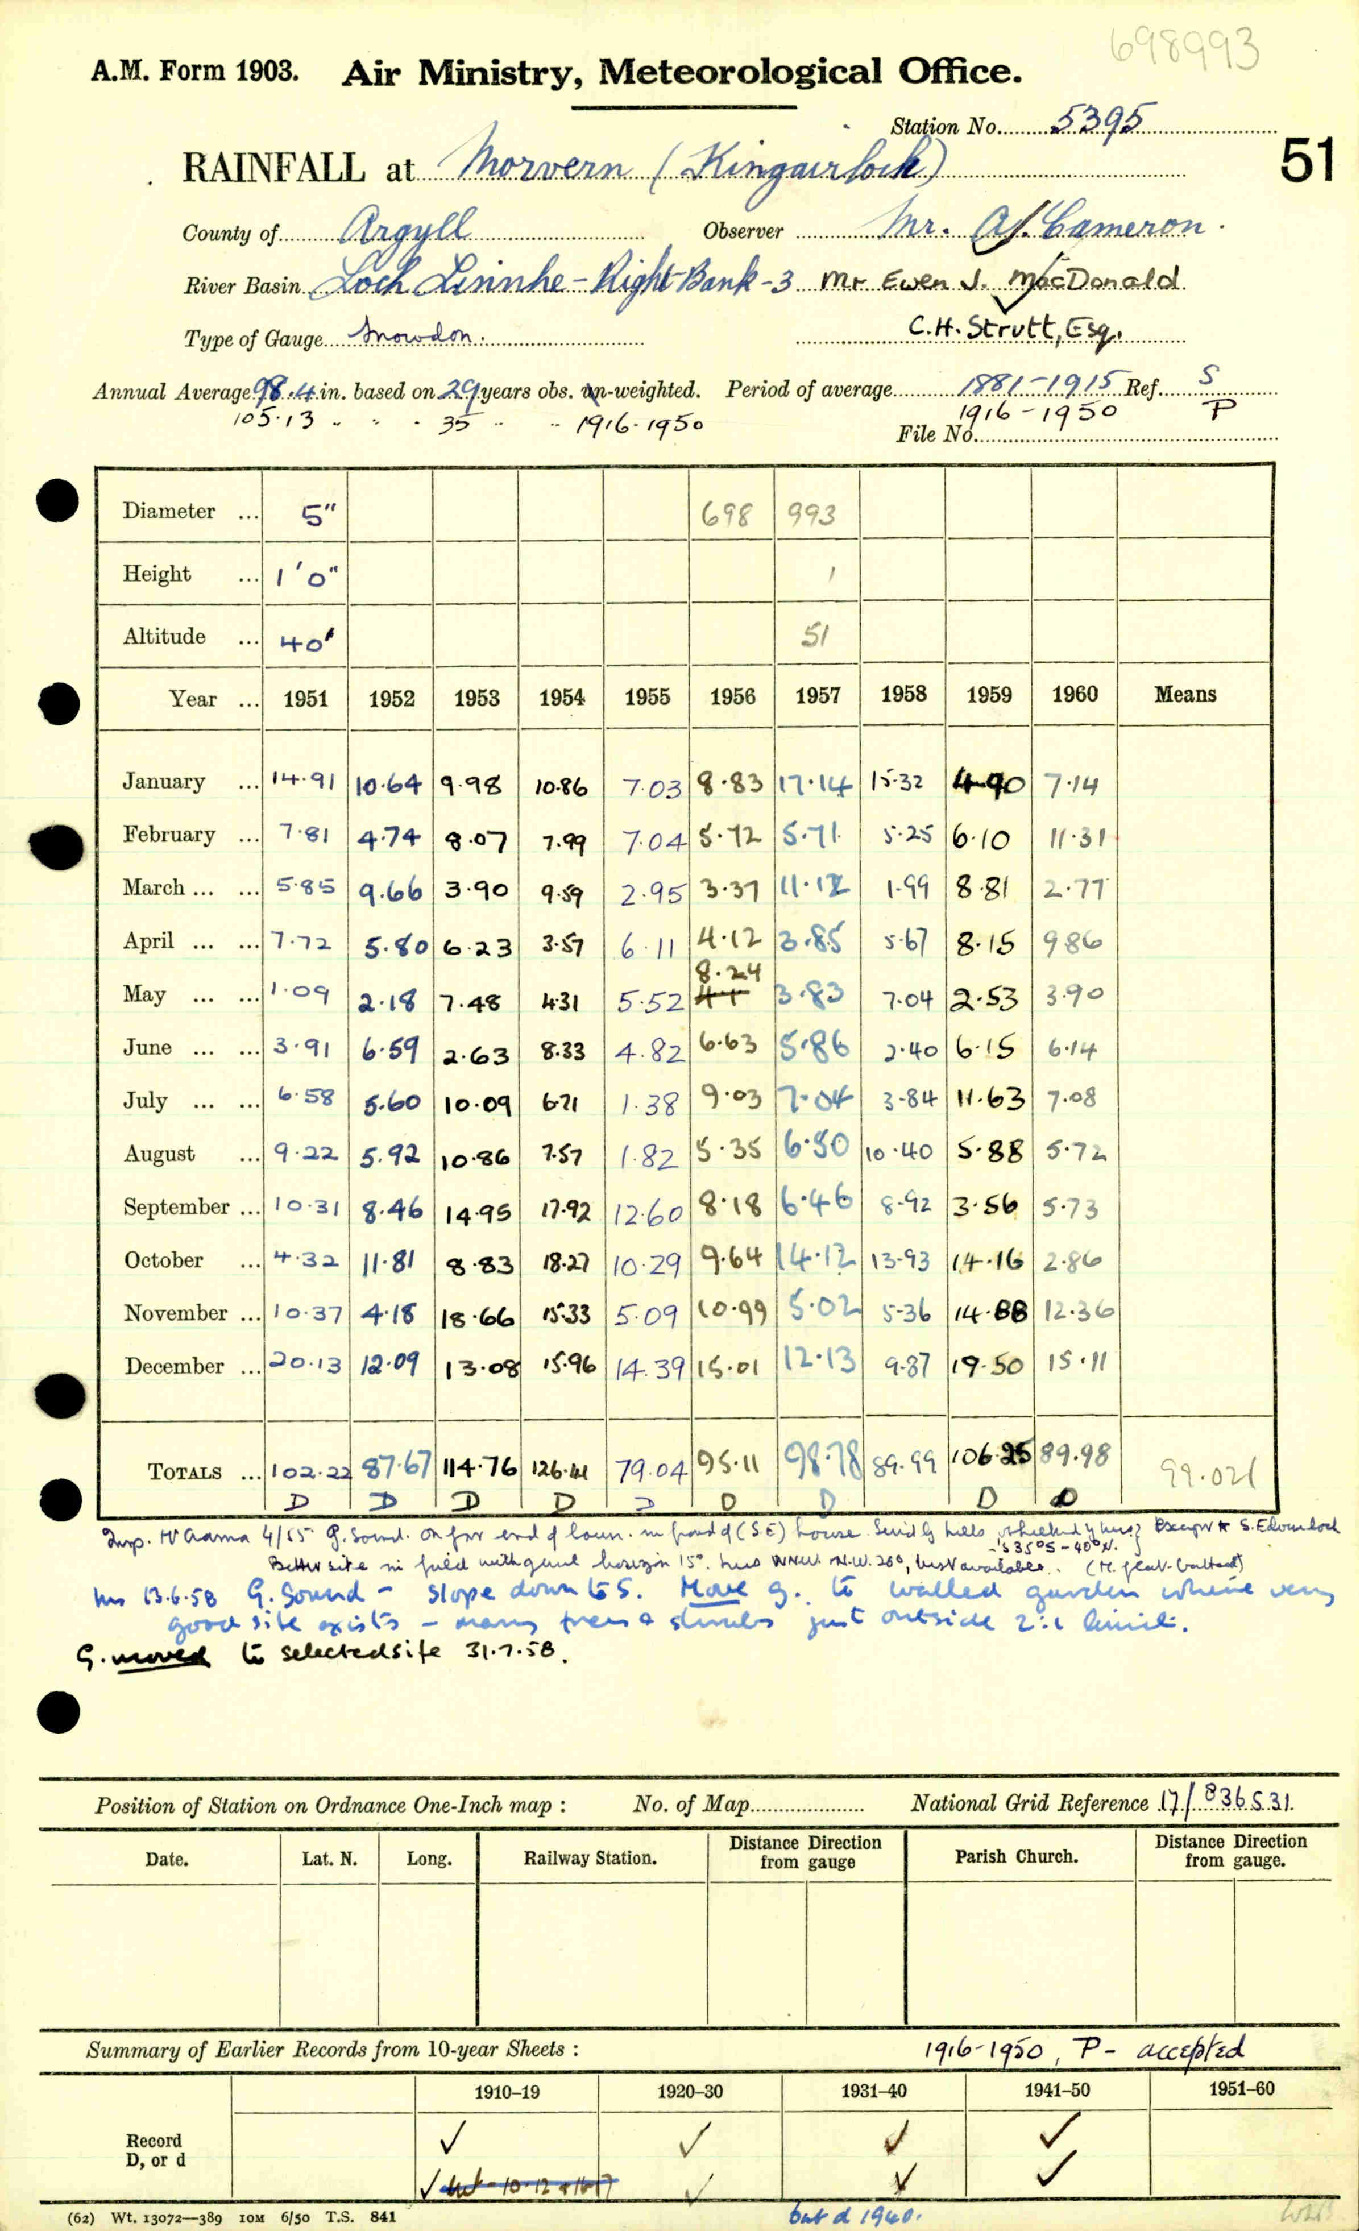 698993
A.M. Form 1903. Air Ministry, Meteorological Office.
Station No. 5395
51
RAINFALL at Morvern (Kingairloch)
County of Argyll Observer Mr. A. J. Cameron.
River Basin Loch Linnhe - Right Bank - 3 Mr Ewen J. MacDonald
Type of Gauge Snowdon. C.H. Strutt, Esq.
Annual Average 98.4 in. based on 29 years obs. un-weighted. Period of average 1881-1915 Ref. S
105.13 " " 35 " " 1916-1950 1916-1950 P
File No.
Diameter ... 5" 698 993
Height ... 1'0" 1
Altitude ... 40' 51
Year ... 1951 1952 1953 1954 1955 1956 1957 1958 1959 1960 Means
January ... 14.91 10.64 9.98 10.86 7.03 8.83 17.14 15.32 4.90 7.14
February ... 7.81 4.74 8.07 7.99 7.04 5.72 5.71 5.25 6.10 11.31
March ... ... 5.85 9.66 3.90 9.59 2.95 3.37 11.12 1.99 8.81 2.77
April ... ... 7.72 5.80 6.23 3.57 6.11 4.12 3.85 5.67 8.15 9.86
8.24
May ... ... 1.09 2.18 7.48 4.31 5.52 3.83 7.04 2.53 3.90
June ... ... 3.91 6.59 2.63 8.33 4.82 6.63 5.86 2.40 6.15 6.14
July ... ... 6.58 5.60 10.09 6.71 1.38 9.03 7.04 3.84 11.63 7.08
August ... 9.22 5.92 10.86 7.57 1.82 5.35 6.50 10.40 5.88 5.72
September ... 10.31 8.46 14.95 17.92 12.60 8.18 6.46 8.92 3.56 5.73
October ... 4.32 11.81 8.83 18.27 10.29 9.64 14.12 13.93 14.16 2.86
November ... 10.37 4.18 18.66 15.33 5.09 10.99 5.02 5.36 14.88 12.36
December ... 20.13 12.09 13.08 15.96 14.39 15.01 12.13 9.87 19.50 15.11
TOTALS ... 102.22 87.67 114.76 126.41 79.04 95.11 98.78 89.99 106.25 89.98 99.021
D D D D D D D D D
Insp. 4/55 G. sound. on far end of lawn. in front of (S.E) house.
Better site in field with 15°. N.W. 260, best available.
13.6.58 G. Sound - slope down to S. Move g. to walled garden where very
good site exists - many trees & shrubs just outside 2:1 limit.
G. moved to selected site 31.7.58.
Position of Station on Ordnance One-Inch map : No. of Map National Grid Reference 17/836531
Date. Lat. N. Long. Railway Station. Distance Direction from gauge Parish Church. Distance Direction from gauge.
Summary of Earlier Records from 10-year Sheets : 1916-1950, P - accepted
1910–19 1920–30 1931–40 1941–50 1951–60
Record ✓ ✓ ✓ ✓
D, or d ✓ ✓ ✓ ✓
(62) Wt. 13072—389 10M 6/50 T.S. 841 but d 1940.